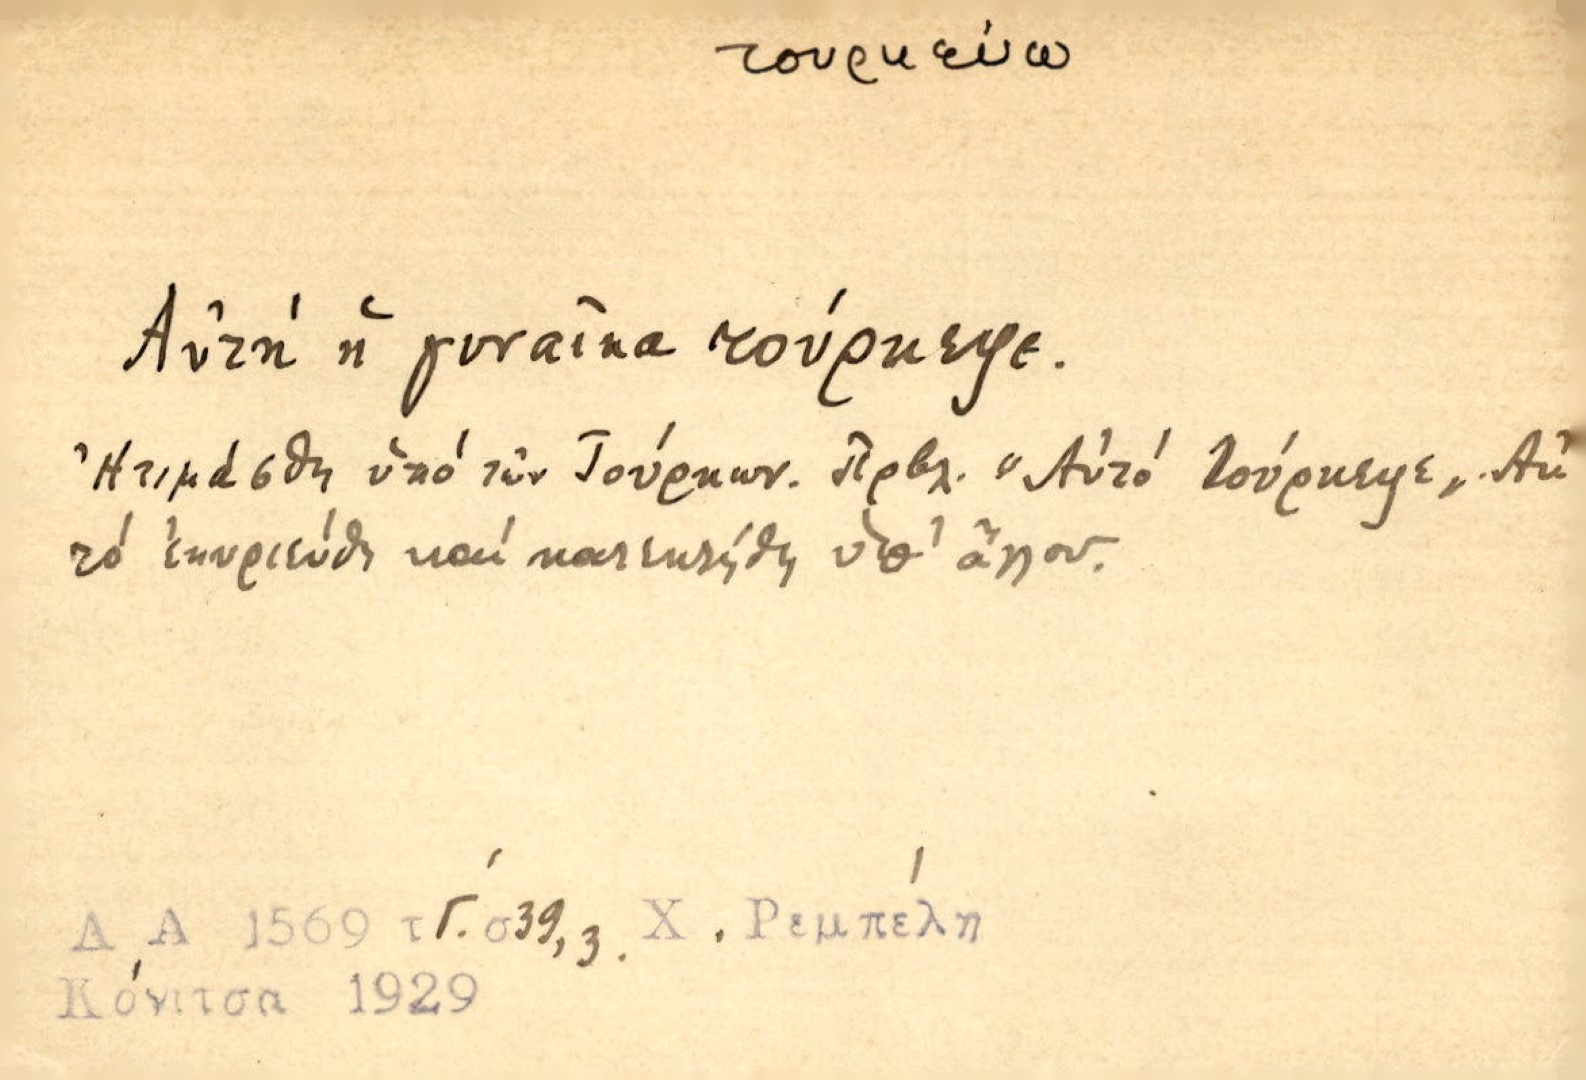 τουρκεύω
Αὐτή ἡ γυναῖκα τούρκεψε.
Ἠτιμάσθη ὑπό τῶν Τούρκων. Πρβλ. "Αὐτό τούρκεψε„. Αὐ
τό ἐκυριεύθη καί κατεκτήθη ὑπ' ἄλλου.
Λ Α 1569 τ Γ΄. σ 39,3. Χ. Ρεμπέλη
Κόνιτσα 1929